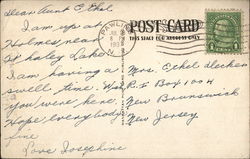 Dear Aunt Ethel
I am up at
Holmes, near
Haley Lake
I am having a
swell time. Wish
you were here.
Hope everybody's
fine
Love Josephine
POST CARD
THIS SPACE FOR ADDRESS ONLY
PAWLING
N.Y.
JUL
8
PM
193
1
Mrs. Ethel
R.F.D. Box 1004
New Brunswick
New Jersey